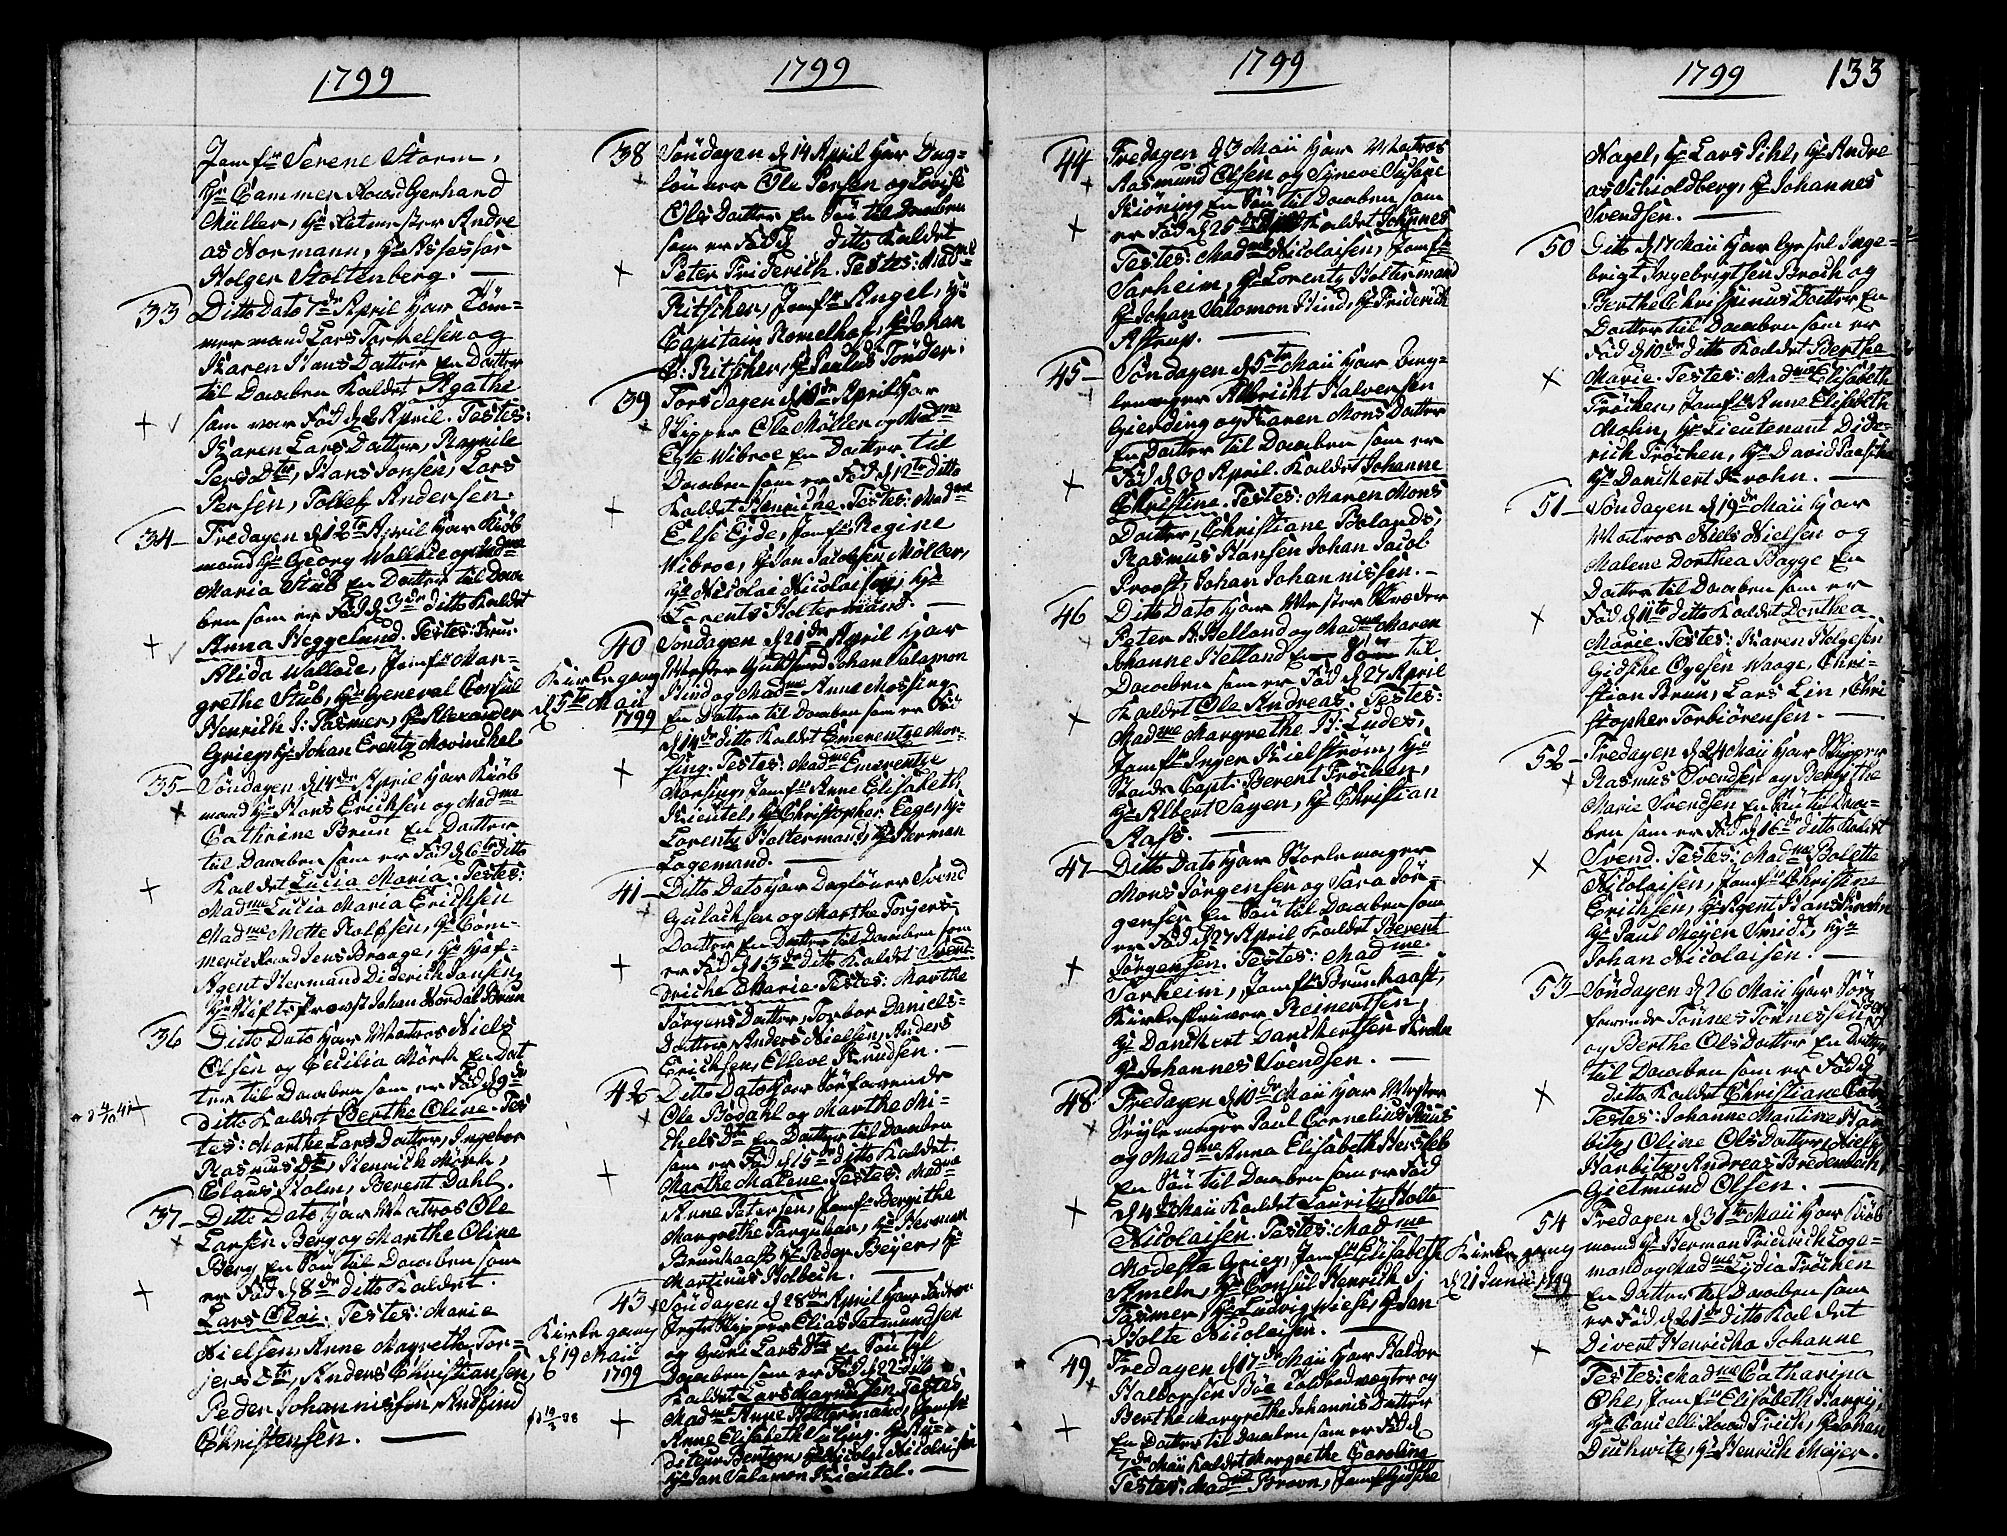 1799
Jomfr Serene Storm,
Hr Cammer Raad Gerhard
Müller, Hr Ritmester Andre
as Normann, Hr Assessor
Holger Stoltenberg.
33 Ditto Dato 7de April har Töm-
mermand Lars Torkelsen og
Karen Hans Datter En Datter
til Daaben Kaldet Agathe
som var Föd d 2 April. Testes:
Karen Lars Datter, Ragnile
Pers Dtr, Hans Jonsen, Lars
Persen, Tollef Andersen.
34 Fredagen d 12te April har Kiöb
mand Hr Georg Wallace og Mad
Maria Stub En Datter til Daa
ben som er Föd d 3de ditto Kaldet
Anna Heggelund. Testes: Frue
Alida Wallace, Jomfr Mar-
grethe Stub, Hr General Consul
Henrich J: Fasmer, Hr Alexander
Grieg, Hr Johan Erentz Mowinckel
35 Söndagen d 14de April har Kiöb
mand Hr Hans Erichsen og Madme
Cathrine Brun En Datter
til Daaben som er Föd d 6te ditto
Kaldet Lucia Maria. Testes:
Madme Lucia Maria Erichsen
Madme Mette Rolfsen, Hr Com-
merce Raad Jens Braage, Hr Hof-
Agent Hermand Diderich Jansen
Hr Stiftsprowst Johan Nordal Brun
36 Ditto Dato har Matros Niels
Olsen og Cecilia Mörk En Dat
ter til Daaben som er Föd d 9de
Ditto Kaldet Berthe Oline. Tes
tes: Marthe Lars Datter, Ingebor
Rasmus Dtr, Henrich Mörk,
Claus Holm, Berent Dahl.
37 Ditto Dato har Matros Ole
Larsen Berg og Marthe Oline
Berg En Sön til Daaben som
er Föd d 8de ditto Kaldet.
Lars Olai. Testes: Marie
Nielsen, Anne Magretha Tor-
jers Dtr, Anders Christiansen,
Peder Johannissen, Andfind
Christensen.
1799
38 Söndagen d 14 April har Dag-
löner Ole Persen og Lovise
Ols Datter En Sön til Daaben
som er Föd d ditto Kaldet
Peter Friderich. Testes: Madme
Ritscher, Jomfr Angel, Hr
Capitain Romelhof, Hr Johan
C: Ritscher, Hr Paulus Tönder.
39 Torsdagen d 18de April har
Skipper Ole Möller og Madme
Elte Wibroe En Datter til
Daaben som er Föd d 12te ditto
Kaldet Henriche. Testes: Madme
Else Eide, Jomfr Regine
Wibroe, Hr Jan Jacobsen Möller,
Hr Nicolai Nicolaisen, Hr
Lorents Holtermand.
40 Söndagen d 21de April har
Mester Guldsmed Johan Salamon
Hind og Madme Anne Mossing
En Datter til Daaben som er Föd
d 14de ditto Kaldet Emerentze Mos-
sing. Testes: Madme Emerentze
Mossing, Jomfr Anne Elisabeth
Krentel, Hr Christopher Eeg, Hr
Lorentz Holtermand, Hr Herman
Logemand.
Kirkegang
d 5te Maii
1799
41 Ditto Dato har Daglöner Svend
Gulachsen og Marthe Torjers-
Datter En Datter til Daaben som
er Föd d 13de ditto Kaldet Svend-
driche Marie. Testes: Marthe
Jörgens Datter, Torbor Daniels-
Datter, Anders Nielsen, Anders
Erichsen, Elleve Knudsen.
42 Ditto Dato har Söefarende
Ole Bodahl og Marthe Mi-
chels Dtr En Datter til Daaben
som er Föd d 15de ditto Kaldet.
Marthe Malene. Testes: Madme
Anne Petersen, Jomfr Bergithe
Margrethe Fargerman, Hr Herman
Brunhaast, Hr Peder Beijer, Hr
Martinus Holbech.
43 Söndagen d 28de April har
Skipper Elias Salmundsen
og Guri Lars Dtr En Sön til
Daaben som er Föd d 22 ditto
Kaldet Lars Magnus. Testes
Madme Anne Holtermand, Jomfr
Anne Elisabeth
diteur Bentzon, Hr Nicolai Nicolaisen
Hr Jan Salamon Krentel.
Kirkegang
d 19 Maii
1799
1799
44 Fredagen d 3 Maii har Matros
Rasmund Olsen og Sÿneve Susane
Kiörning En Sön til Daaben som
er Föd d 25 Kaldet Johannes
Testes: Madme Nicolaisen, Jomfr
Sarheim, Hr Lorentz Holtermand
Hr Johan Salomon Hind, Hr Friderich
Astrup.
45 Söndagen d 5te Maii har
Albricht Halversen
Gierding og Karen Mons Datter
En Datter til Daaben som er
Föd d 30 April. Kaldet Johanne
Christina. Testes: Maren Mons
Datter, Christiane Bolands,
Rasmus Hansen Johan Jacob
Proost, Johan Johannissen.
46 Ditto Dato har Mester Skræder
Peter A: Helland og Madme Maren
Johanne Helland En Sön til
Daaben som er Föd d 27 April
Kaldet Ole Andreas. Testes:
Madme Margrethe H: Luders,
Jomfr Inger Kielström, Hr
Stads Capt: Berent Fröchen,
Hr Albert Sagen, Hr Christian
Aass.
47 Ditto Dato har Stoelemager
Mons Jörgensen og Sara Jör-
gensen En Sön til Daaben som
er Föd d 27 April Kaldet Berent
Jörgensen. Testes: Madme.
Sarheim, Jomfr Brunhaast,
Kirkeskriver Reinertsen,
Hr Danckert Danckertsen Krohn
Hr Johannes Svendsen.
48 Fredagen d 10de Maii har Mester
Paul Cornelius
og Madme Anna Elisabeth Hersleb
En Sön til Daaben som er Föd
d 4de Maii Kaldet Lauritz Holte
Nicolaisen. Testes: Madme
Modesta Grieg, Jomfr Elisabeth
Ameln, Hr Consul Henrich J;
Fasmer, Hr Ludvig Wiese, Hr Jan
Holte Nicolaisen.
49 Fredagen d 17de Maii har Haldor
Halvorsen Böe Toldbodvægter og
Berthe Margrethe Johannis Datter
En Datter til Daaben som er Föd d
7de Maii Kaldet Margrethe Caroline
Testes: Madme Brown, Jomfr Gidsche
1799 133
Nagel, Hr Lars Pihl, Hr Andre
as Schioldberg, Hr Johannes
Svendsen.
50 Ditto d 17 Maii har Gesel Inge-
brigt Ingebrigtsen Broch og
Berthe Christinus Datter En
Datter til Daaben som er
Föd d 10de ditto Kaldet Berthe
Marie. Testes: Madme Elisabeth
Fröchen, Jomfr Anne Elisabeth
Mohn, Hr Lieutenant Dide-
rich Fröchen, Hr David Paasche
Hr Danckert Krohn.
51 Söndagen d 19de Maii har
Matros Niels Nielsen og
Malene Dorthea Bagge En
Datter til Daaben som er
Föd d 11te ditto Kaldet Dorthea
Marie. Testes: Karen Holgesen
Gidske Ogesen Waage, Chri-
stian Brun, Lars Lin, Chri
stopher Torbiörensen.
52 Fredagen d 24 Maii har Skipper
Rasmus Svendsen og Bergithe
Marie Svendsen En Sön til Daa-
ben som er Föd d 16de ditto Kaldet
Svend. Testes: Madme Bolette
Nicolaisen, Jomfr Christine
Erichsen, Hr Agent Hans Krohn
Hr Paul Meyer Smidt, Hr
Johan Nicolaisen.
53 Söndagen d 26 Maii har Söe
farende Tönnes Tönnessen
og Berthe Ols Datter En Datter
til Daaben som er Föd d
ditto Kaldet Christiane
Testes: Johanne Martine Har
bitz, Oline Ols Datter, Niels
Harbitz, Andreas Bredenbech,
Gietmund Olsen.
54 Fredagen d 31te Maii har Kiöb
mand Hr Herman Friedrich Loge-
mand og Madme Lydia Fröchen
En Datter til Daaben som
er Föd d 21de ditto Kaldet
Divert Henricha Johanne
Testes: Madme Catharina
Ohe, Jomfr Elisabeth
Hr Cancelliraad Frich, Hr Johan
Duchwitz, Hr Henrich Meÿer.
Kirkegang
d 21 Junii 1799